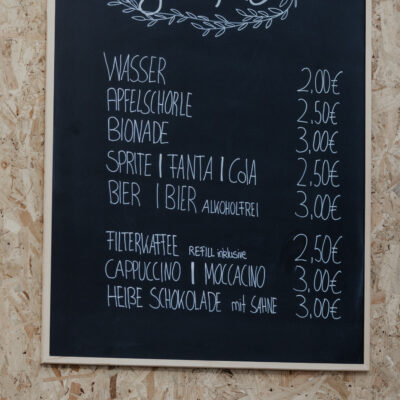 WASSER 2,00€
APFELSCHORLE 2,50€
BIONADE 3,00€
SPRITE | FANTA | COLA 2,50€
BIER | BIER ALKOHOLFREI 3,00€
FILTERKAFFEE REFILL inklusive 2,50€
CAPPUCCINO | MOCCACINO 3,00€
HEIßE SCHOKOLADE mit SAHNE 3,00€